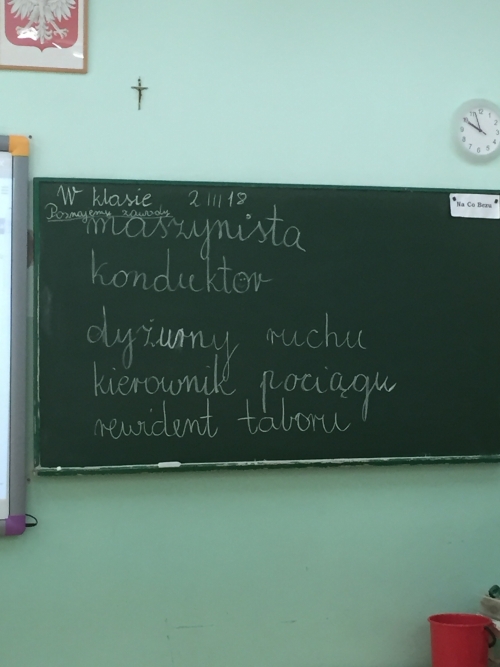 W klasie 2 III 18
Poznajemy zawody
maszynista
konduktor
dyżurny ruchu
kierownik pociągu
rewident taboru
Na Co Bezu